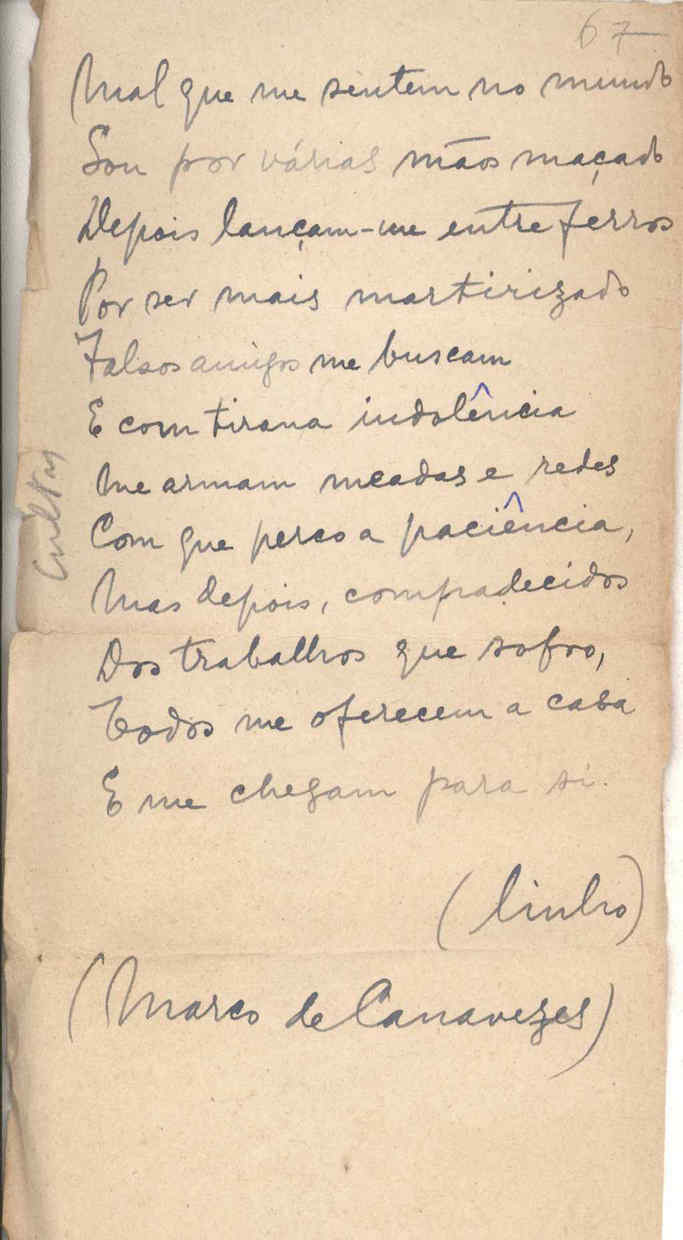 67
Mal que me sentem no mundo
Sou por várias mãos maçado
Depois lançam-me entre ferros
Por ser mais martirizado
Falsos amigos me buscam
E com tirana indolência
Me armam meadas e redes
Com que perco a paciência,
Mas depois, compadecidos
Dos trabalhos que sofro,
Todos me oferecem a casa
E me chegam para si.
(linho)
(Marco de Canavezes)